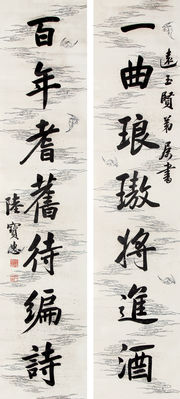 遠玉賢弟屬書
一曲琅璈將進酒
百年耆舊待編詩
陸寶忠